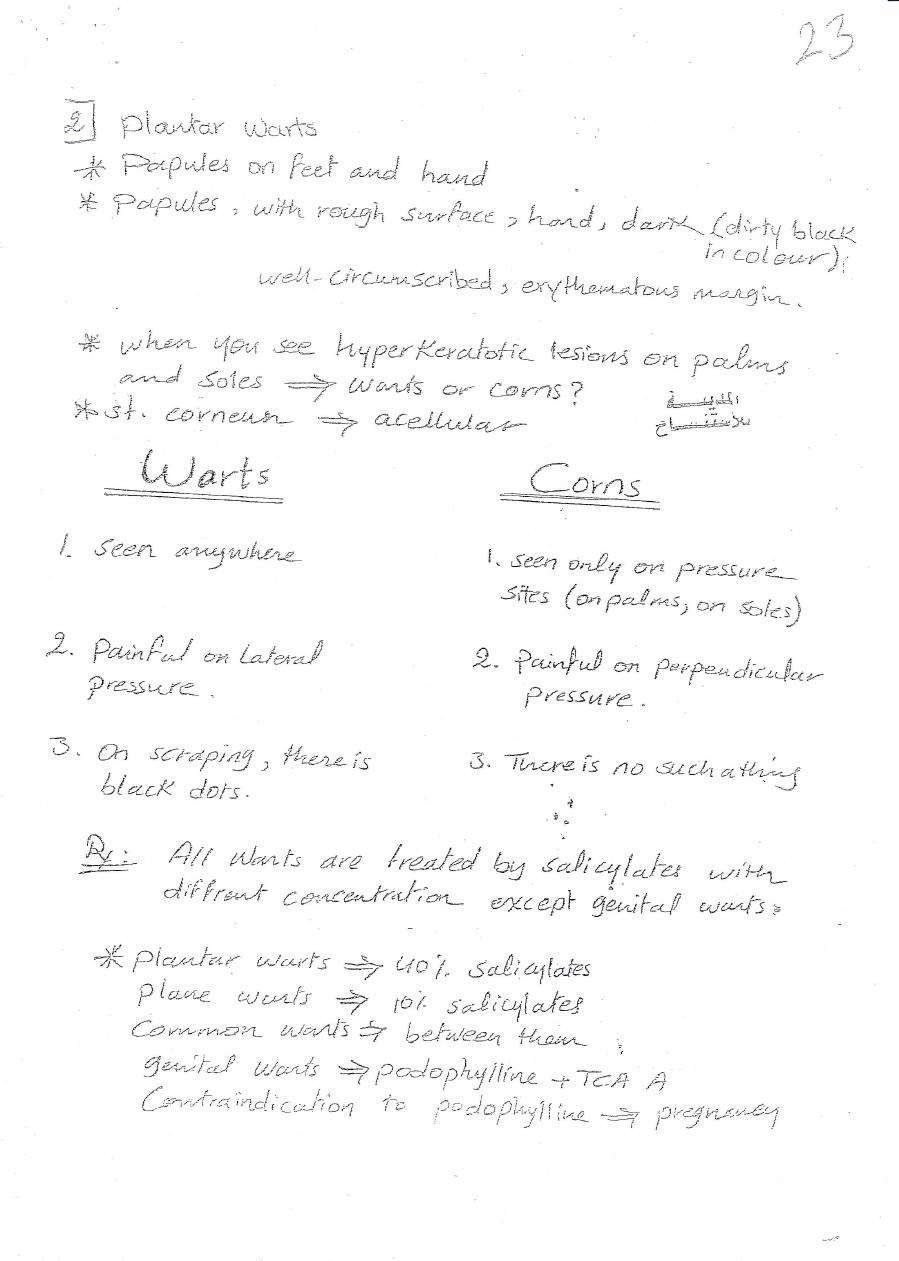 23
2 Plantar warts
* Papules on feet and hand
* Papules, with rough surface, hard, dark (dirty black
in colour),
well-circumscribed, erythematous margin.
* when you see hyperkeratotic lesions on palms
and soles ⇒ warts or corns?
* st. corneum ⇒ acellular
المدينة
للاستنساخ
Warts
Corns
1. Seen anywhere
1. seen only on pressure
sites (on palms, on soles)
2. Painful on Lateral
pressure.
2. Painful on perpendicular
pressure.
3. On scraping, there is
black dots.
3. There is no such a thing
Rx: All warts are treated by salicylates with
diffrent concentration except genital warts:
* plantar warts ⇒ 40% salicylates
plane warts ⇒ 10% salicylates
Common warts ⇒ between them
genital warts ⇒ podophylline + TCA A
Contraindication to podophylline ⇒ pregnancy